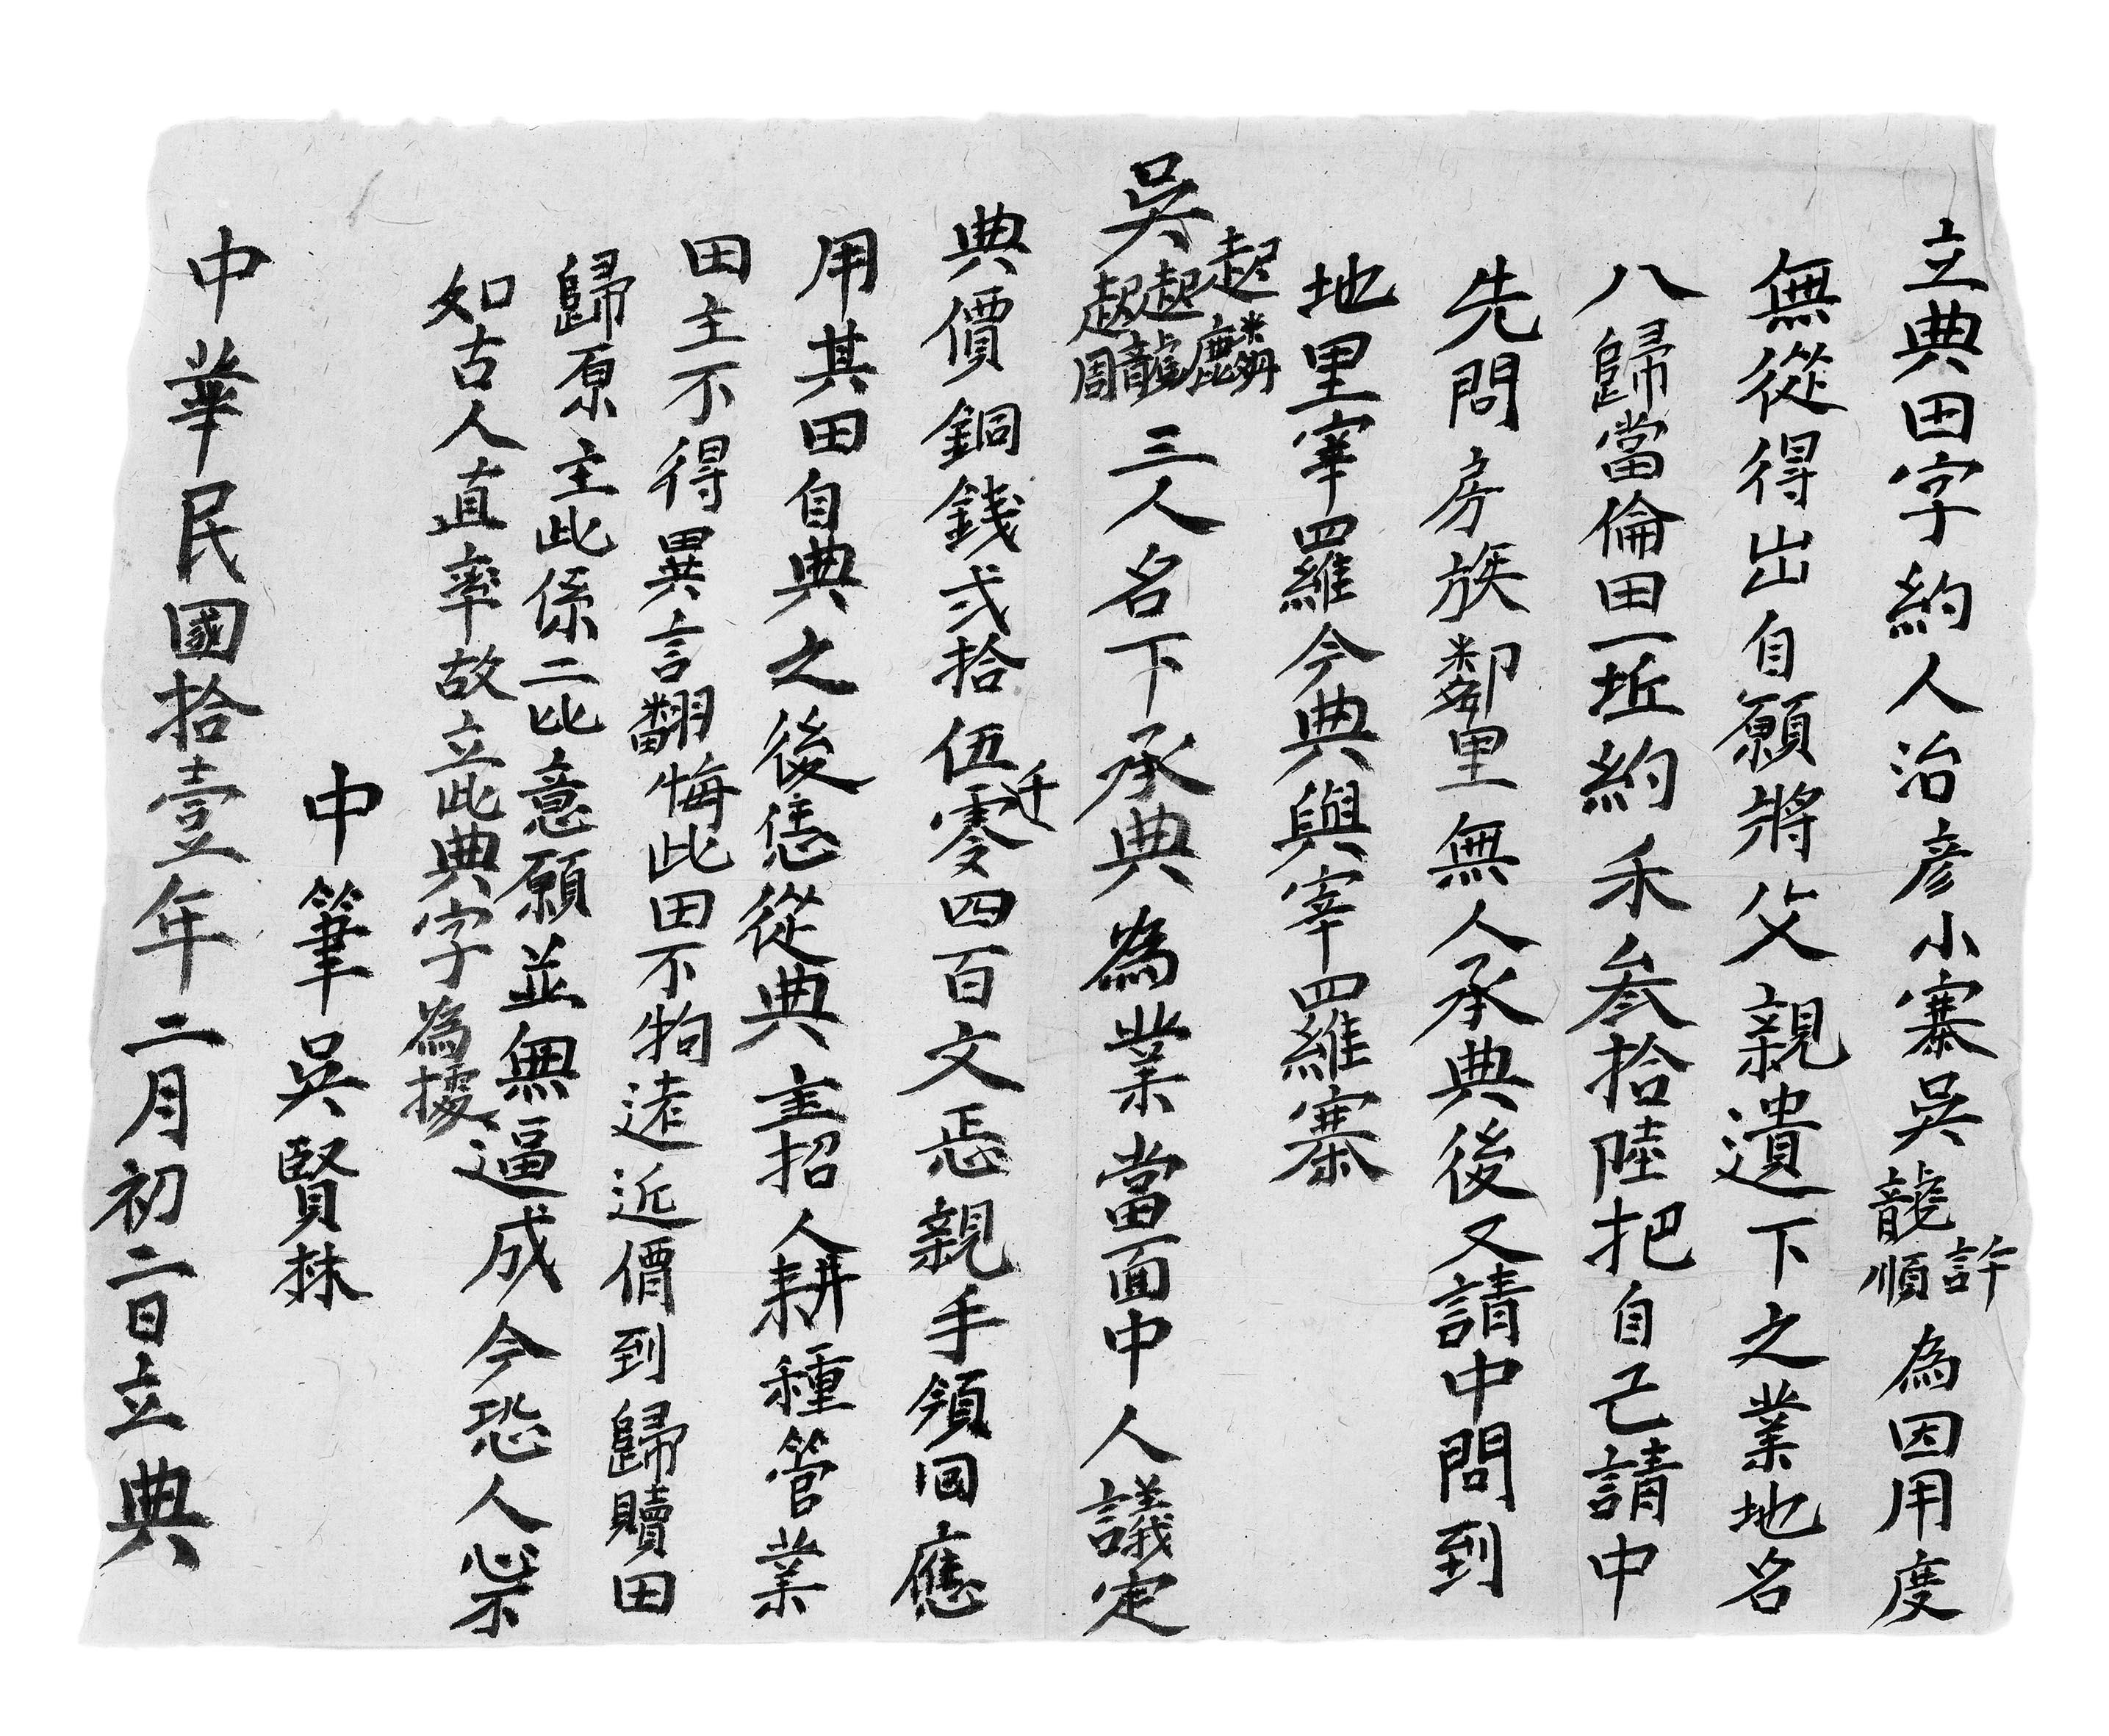 立典田字約人治彦小寨吳龍許順為因用度
無從得出自願將父親遺下之業地名
八歸當倫田一坵約禾叁拾陸把自己請中
先問房族鄰里無人承典後又請中問到
地里宰羅今典與宰羅寨
吳起麟起龍起周三人名下承典為業當面中人議定
典價銅錢弍拾伍仟零四百文忢親手領回應
用其田自典之後恁從典主招人耕種管業
田主不得異言翻悔此田不拘遠近價到歸贖田
歸原主此係二比意願並無逼成今恐人心不
如古人直率故立此典字為據
中筆吳賢林
中華民國拾壹年二月初二日立典